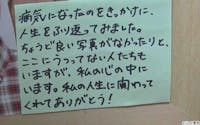 病気になったのをきっかけに、
人生をふり返ってみました。
ちょうど良い写真がなかったりと、
ここにうつってない人たちも
いますが、私の心の中に
います。私の人生に関わって
くれてありがとう！